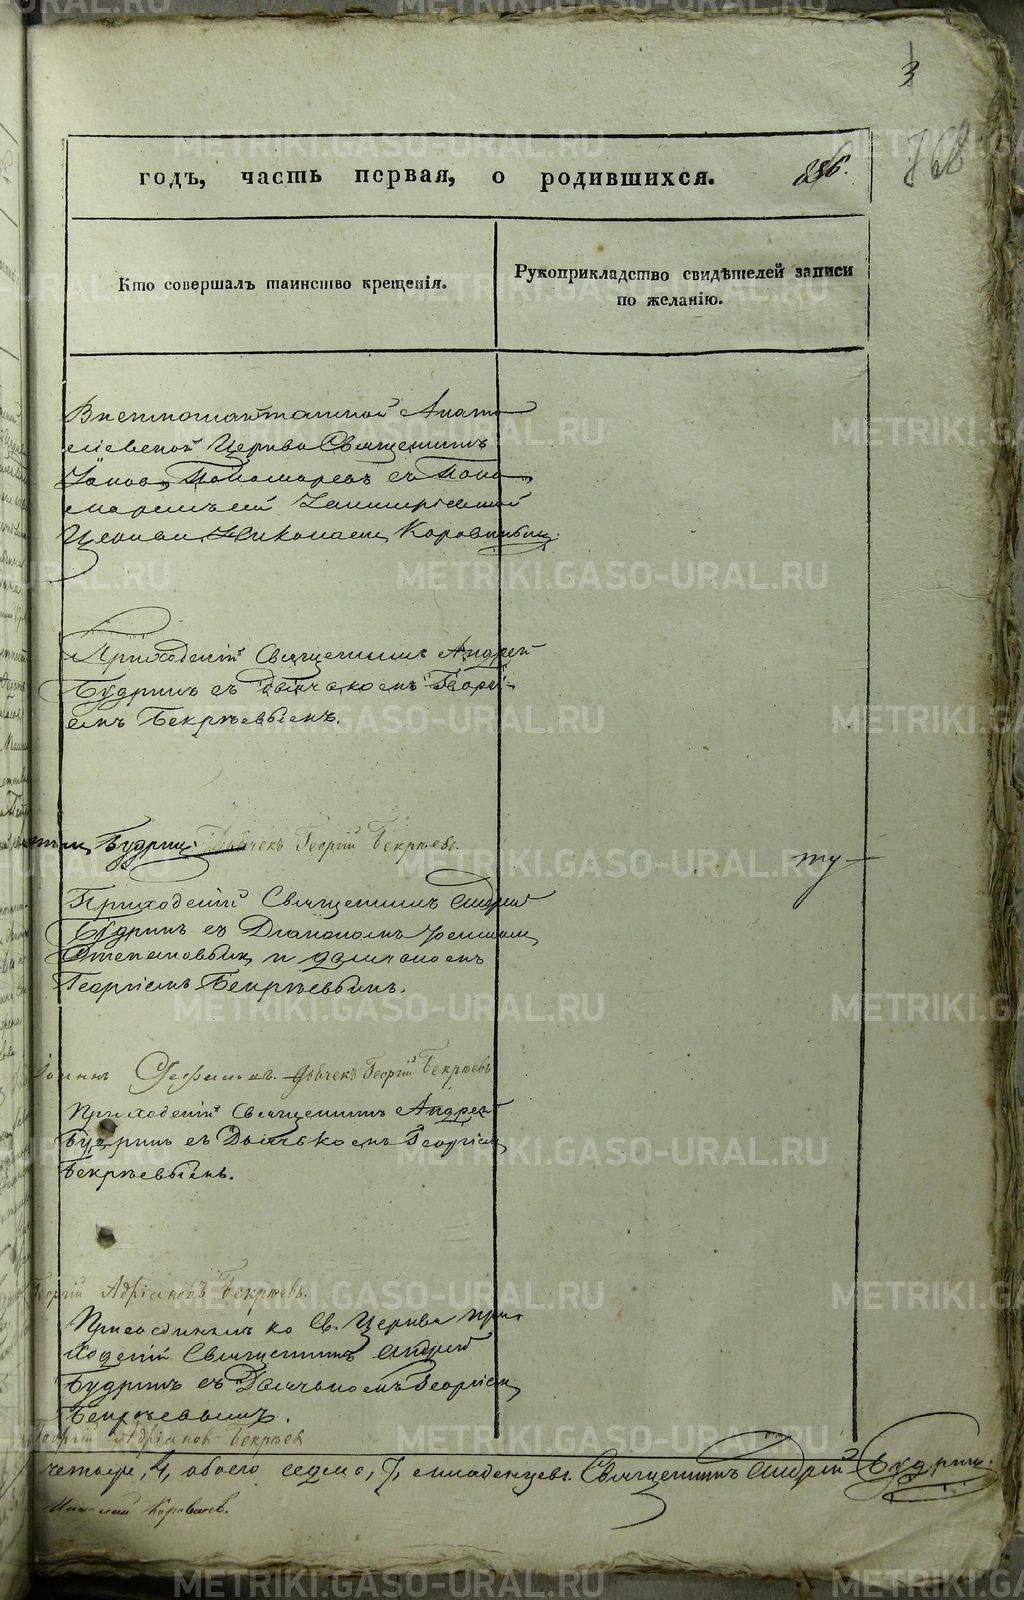 3
768
годъ, часть первая, о родившихся. 286.
Кто совершалъ таинство крещенія.
Рукоприкладство свидѣтелей записи
по желанію.
Церкви Священникъ
Іоаннъ Пономаревъ съ Поно
маремъ
Церкви Николаемъ
Приходскій Священникъ Андрей
Будринъ съ дьячкомъ Георгі-
емъ Бекряевымъ.
Будринъ. Дьячекъ Георгій Бекряевъ.
Приходскій Священникъ Андрей
Будринъ съ Діакономъ
Степановымъ и дьячкомъ
Георгіемъ Бекряевымъ.
Іоаннъ Дьячекъ Георгій Бекряевъ
Приходскій Священникъ Андрей
Будринъ съ Дьячкомъ Георгіем
Бекряевымъ.
Георгій Адріановъ Бекряевъ.
ко Св. Церкви при-
ходскій Священникъ Андрей
Будринъ съ Дьячкомъ Георгіем
Бекряевымъ.
Георгій Адріановъ Бекряев
четыре, 4, обоего седмь, 7, младенцевъ. Священникъ Андрей Будринъ.
METRIKI.GASO-URAL.RU